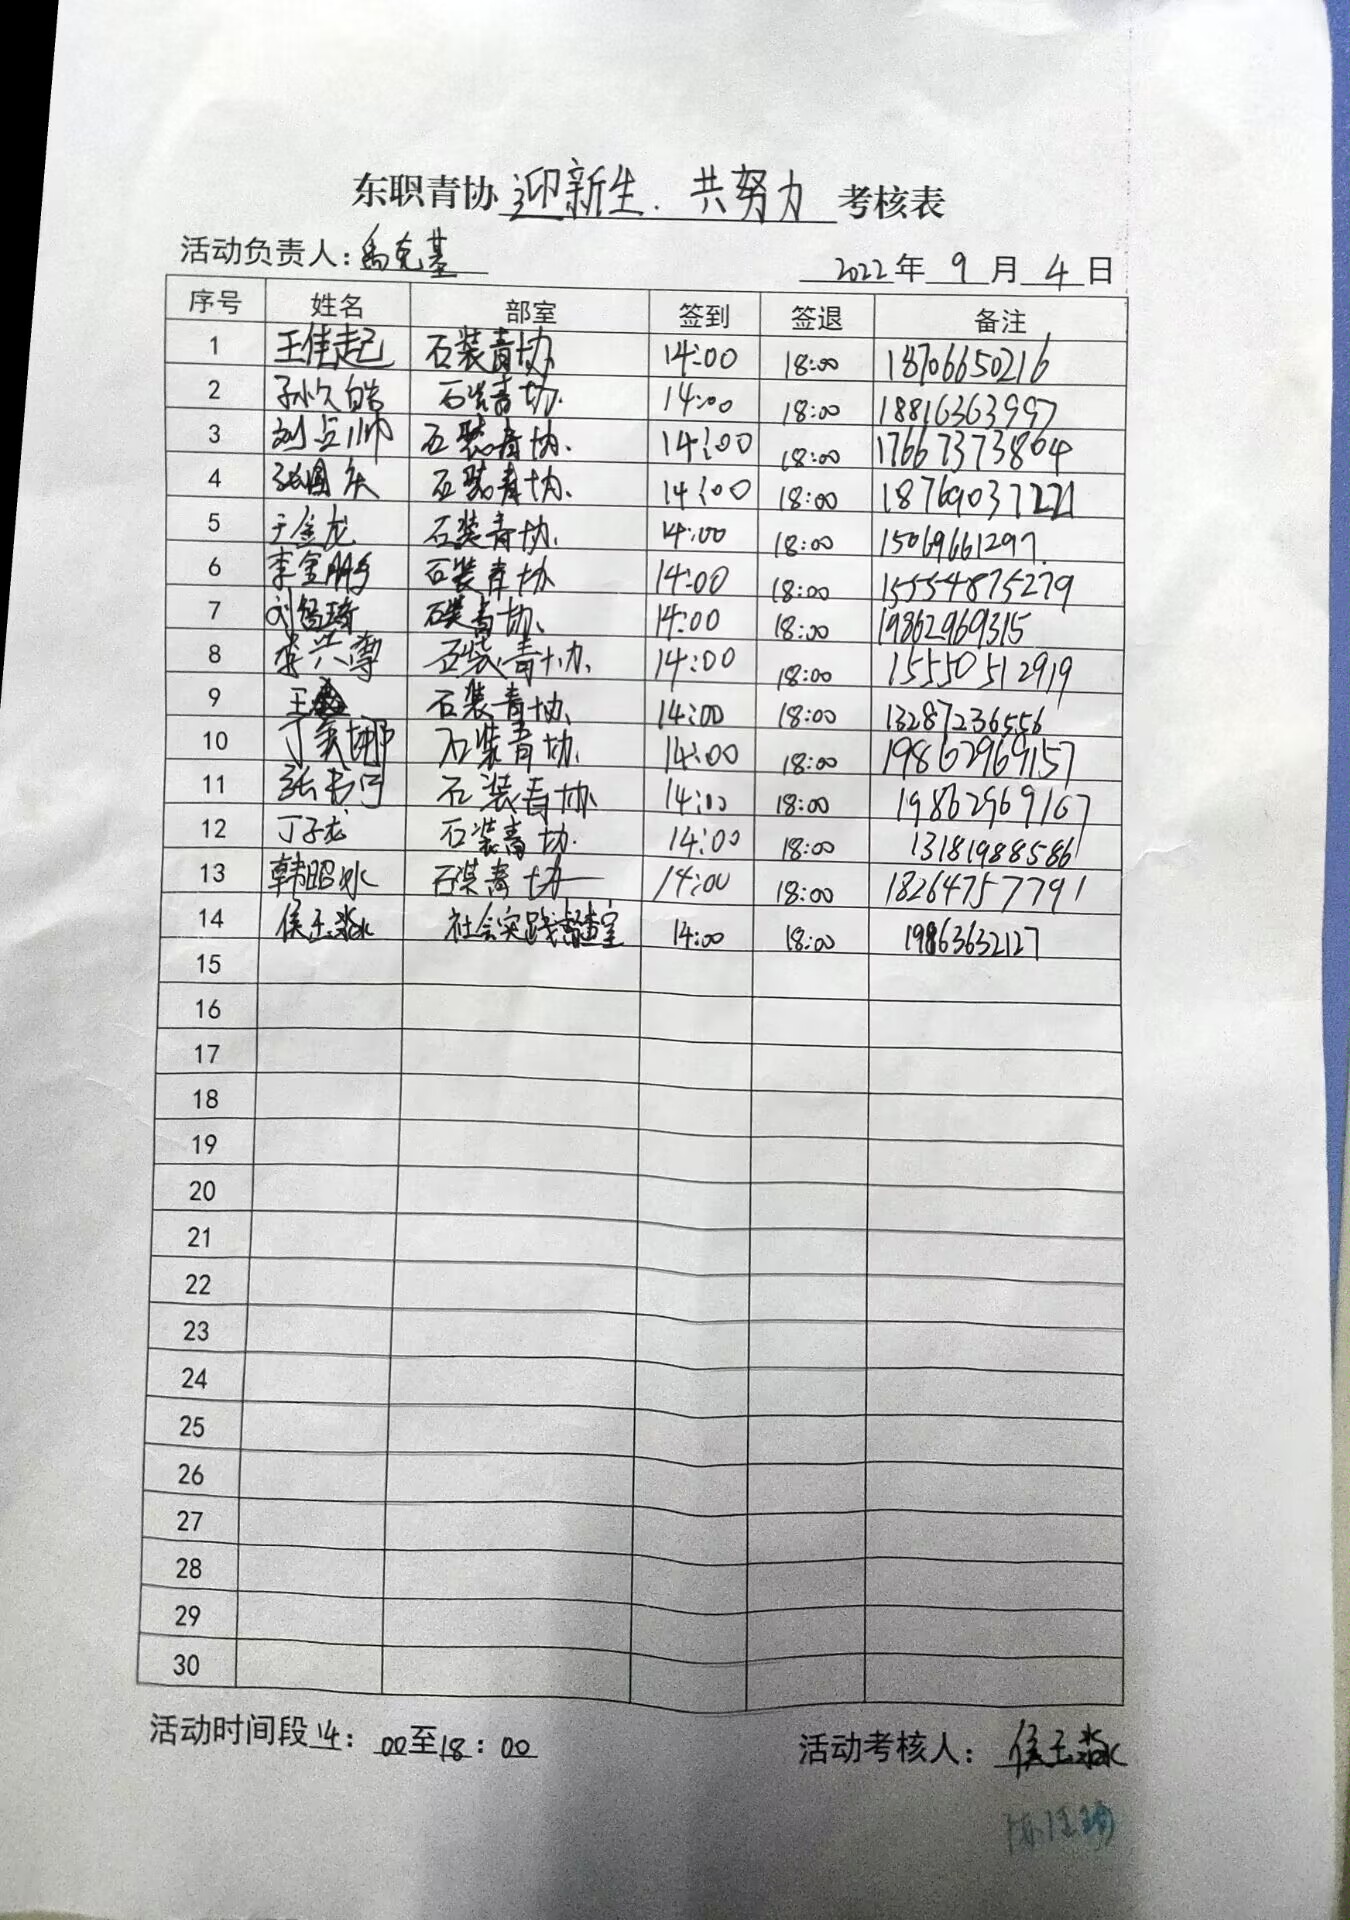 东职青协 迎新生、共努力 考核表
活动负责人：禹克基 2022年9月4日
序号 姓名 部室 签到 签退 备注
1 王佳起 石装青协 14:00 18:00 18706650216
2 孙久皓 石装青协 14:00 18:00 18816363997
3 石装青协 14:00 18:00 17667373864
4 张国庆 石装青协 14:00 18:00 18769037221
5 于金龙 石装青协 14:00 18:00 15069661297
6 李金鹏 石装青协 14:00 18:00 15554875279
7 石装青协 14:00 18:00 19862969315
8 石装青协 14:00 18:00 15550512919
9 王 石装青协 14:00 18:00 13287236556
10 石装青协 14:00 18:00 19862969157
11 石装青协 14:00 18:00 19862969167
12 丁子龙 石装青协 14:00 18:00 13181988586
13 韩昭水 石装青协 14:00 18:00 18264757791
14 侯玉淼 社会实践 14:00 18:00 19863632127
15
16
17
18
19
20
21
22
23
24
25
26
27
28
29
30
活动时间段14：00至18：00 活动考核人：侯玉淼